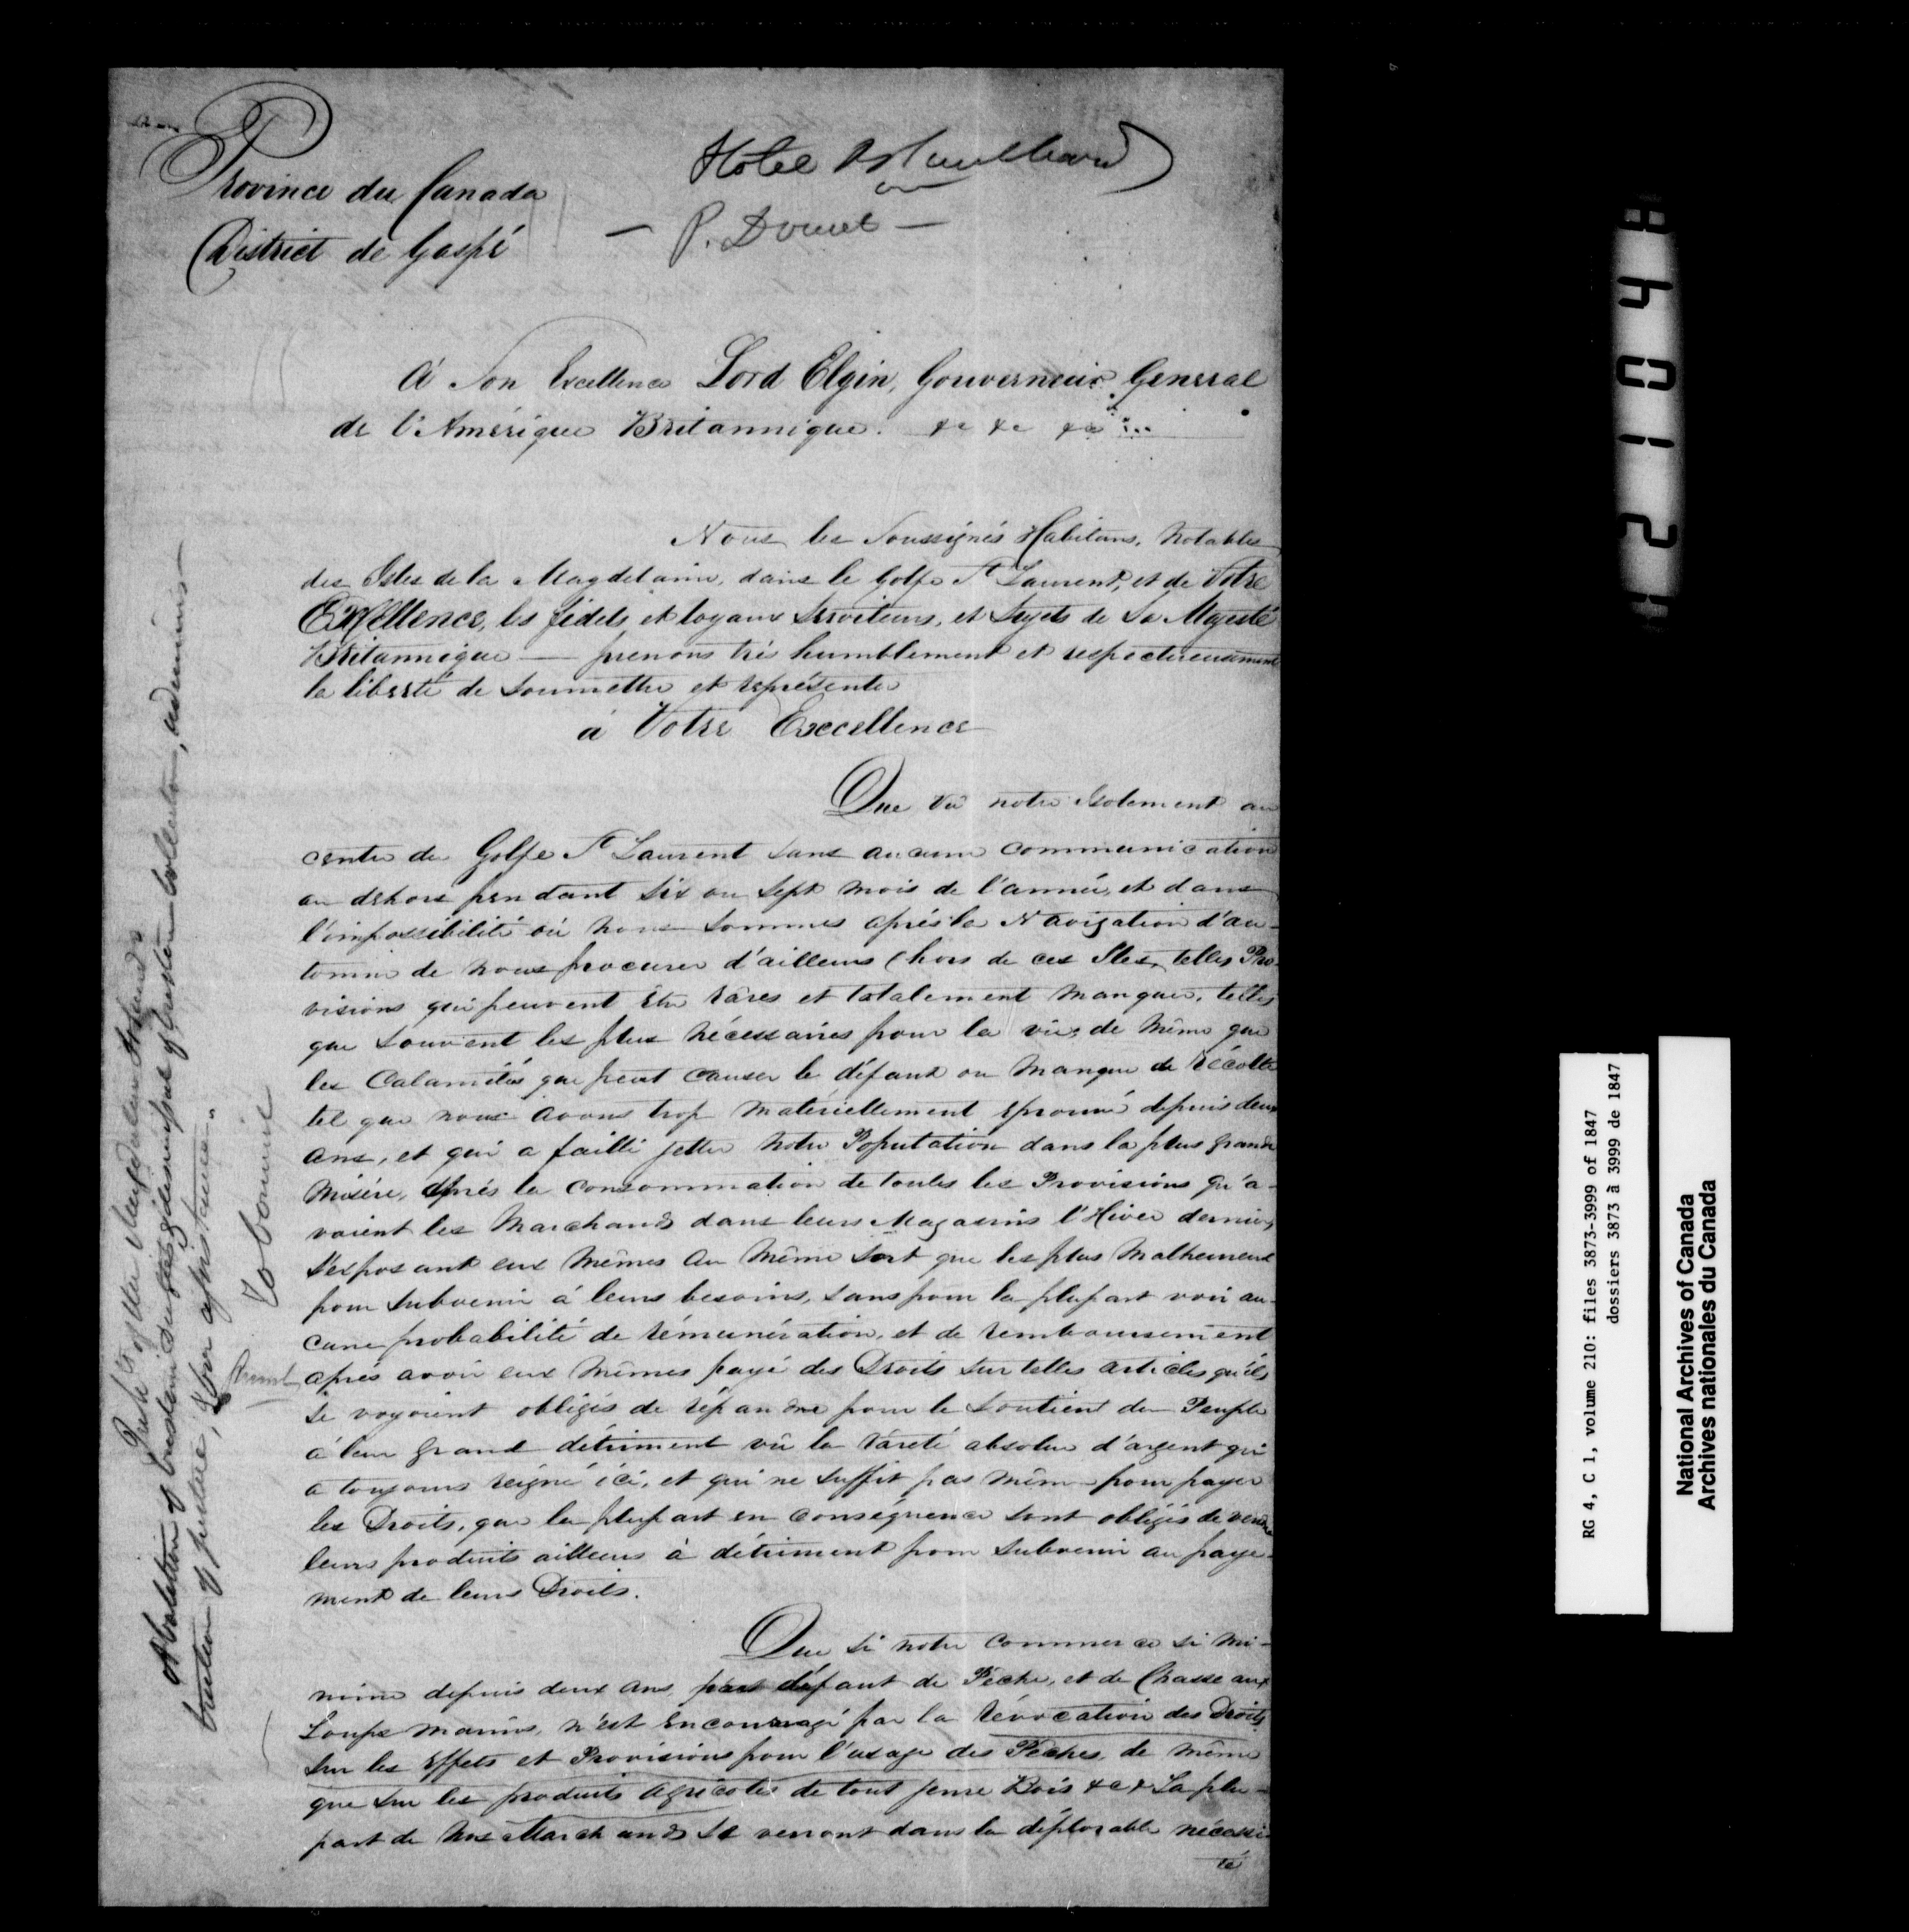 Province du Canada
District de Gaspé
Hotel
P. Doucet
à Son Excellence Lord Elgin, Gouverneur General
de l'Amérique Britannique. &c &c &c
Nous les Soussignés Habitans, Notables
des Isles de la Magdelaine, dans le Golfe St Laurent, et de Votre
Excellence, les fidels et loyaux Serviteurs, et Sujets de Sa Majesté
Britannique — prenons très humblement et respectueusement
la liberté de soumettre et représenter
à Votre Excellence
Que vû notre Isolement au
centre du Golfe St Laurent sans aucune communication
au dehors pendant six ou sept mois de l'année, et dans
l'impossibilité où nous sommes après la Navigation d'au-
tomne de nous procurer d'ailleurs (hors de ces Iles, telles Pro-
visions qui peuvent être râres et totalement manquer, telles
que souvent les plus nécessaires pour la vie, de même que
les Calamités que peut causer le défaut ou manque de récolte
tel que nous avons trop matériellement eprouvé depuis deux
ans, et qui a failli jetter notre Population dans la plus grande
Misère, après la consommation de toutes les Provisions qu'a-
vaient les Marchands dans leurs Magasins l'Hiver dernier,
s'exposant eux mêmes au même sort que les plus malheureux
pour subvenir à leurs besoins, sans pour la plupart voir au-
cune probabilité de rémunération, et de remboursement
après avoir eux mêmes payé des Droits sur telles articles qu'ils
se voyoient obligés de répandre pour le soutient du Peuple
à leur grand détriment vû la râreté absolue d'argent qui
a toujours reigné ici, et qui ne suffit pas même pour payer
les Droits, que la plupart en conséquence sont obligés de vendre
leurs produits ailleurs à détriment pour subvenir au paye-
ment de leurs Droits.
Que si notre commerce si mi-
nime depuis deux ans, par défaut de Pêche, et de Chasse aux
Loups marins, n'est encouragé par la révocation des Droits
sur les Effets et Provisions pour l'usage des Pêches, de même
que sur les produits agricoles de tout genre Bois &c & La plu-
part de nos Marchands se verront dans la déplorable nécessi-
té
of the Magdalen Islands
Abolition of
of justice, & for assistance.
RG 4, C 1, volume 210: files 3873-3999 of 1847
dossiers 3873 à 3999 de 1847
National Archives of Canada
Archives nationales du Canada